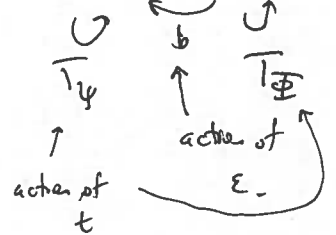 b
T_ψ T_Φ
action of
action of
ε_
t